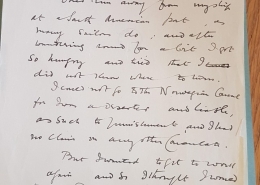 Once ran away from my ship
at a South American port, as
many sailors do; and after
wandering round for a bit I got
so hungry and tired that I
did not know where to turn.
I could not go to the Norwegian Consul
for I was a deserter and liable,
as such to punishment, and I had
no claim on any other Consulate.
But I wanted to get to work
again and so I thought I would